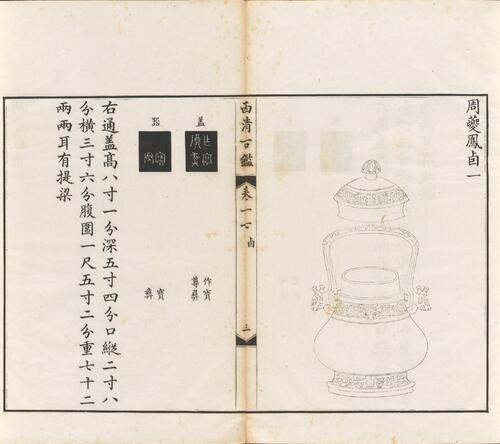 周夔鳳卣一
西清古鑑
卷一七
卣
三
盖
作寶
尊彝
器
寶
彝
右通盖髙八寸一分深五寸四分口縱二寸八
分橫三寸六分腹圍一尺五寸二分重七十二
兩兩耳有提梁